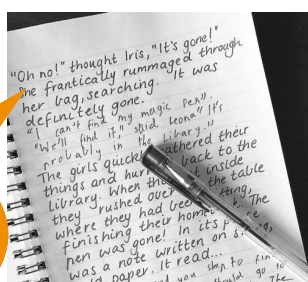 "Oh no!" thought Iris, "It's gone!"
She frantically rummaged through
her bag, searching. It was
definitely gone.
"I can't find my magic pen".
"We'll find it," said Leona" It's
probably in the library."
The girls quickly gathered their
things and hurried back to the
library. When they got inside
they rushed over to the table
where they had been sitting,
finishing their homework. The
pen was gone! In its place
was a note written on
old paper. It read...
you to
should go to
The